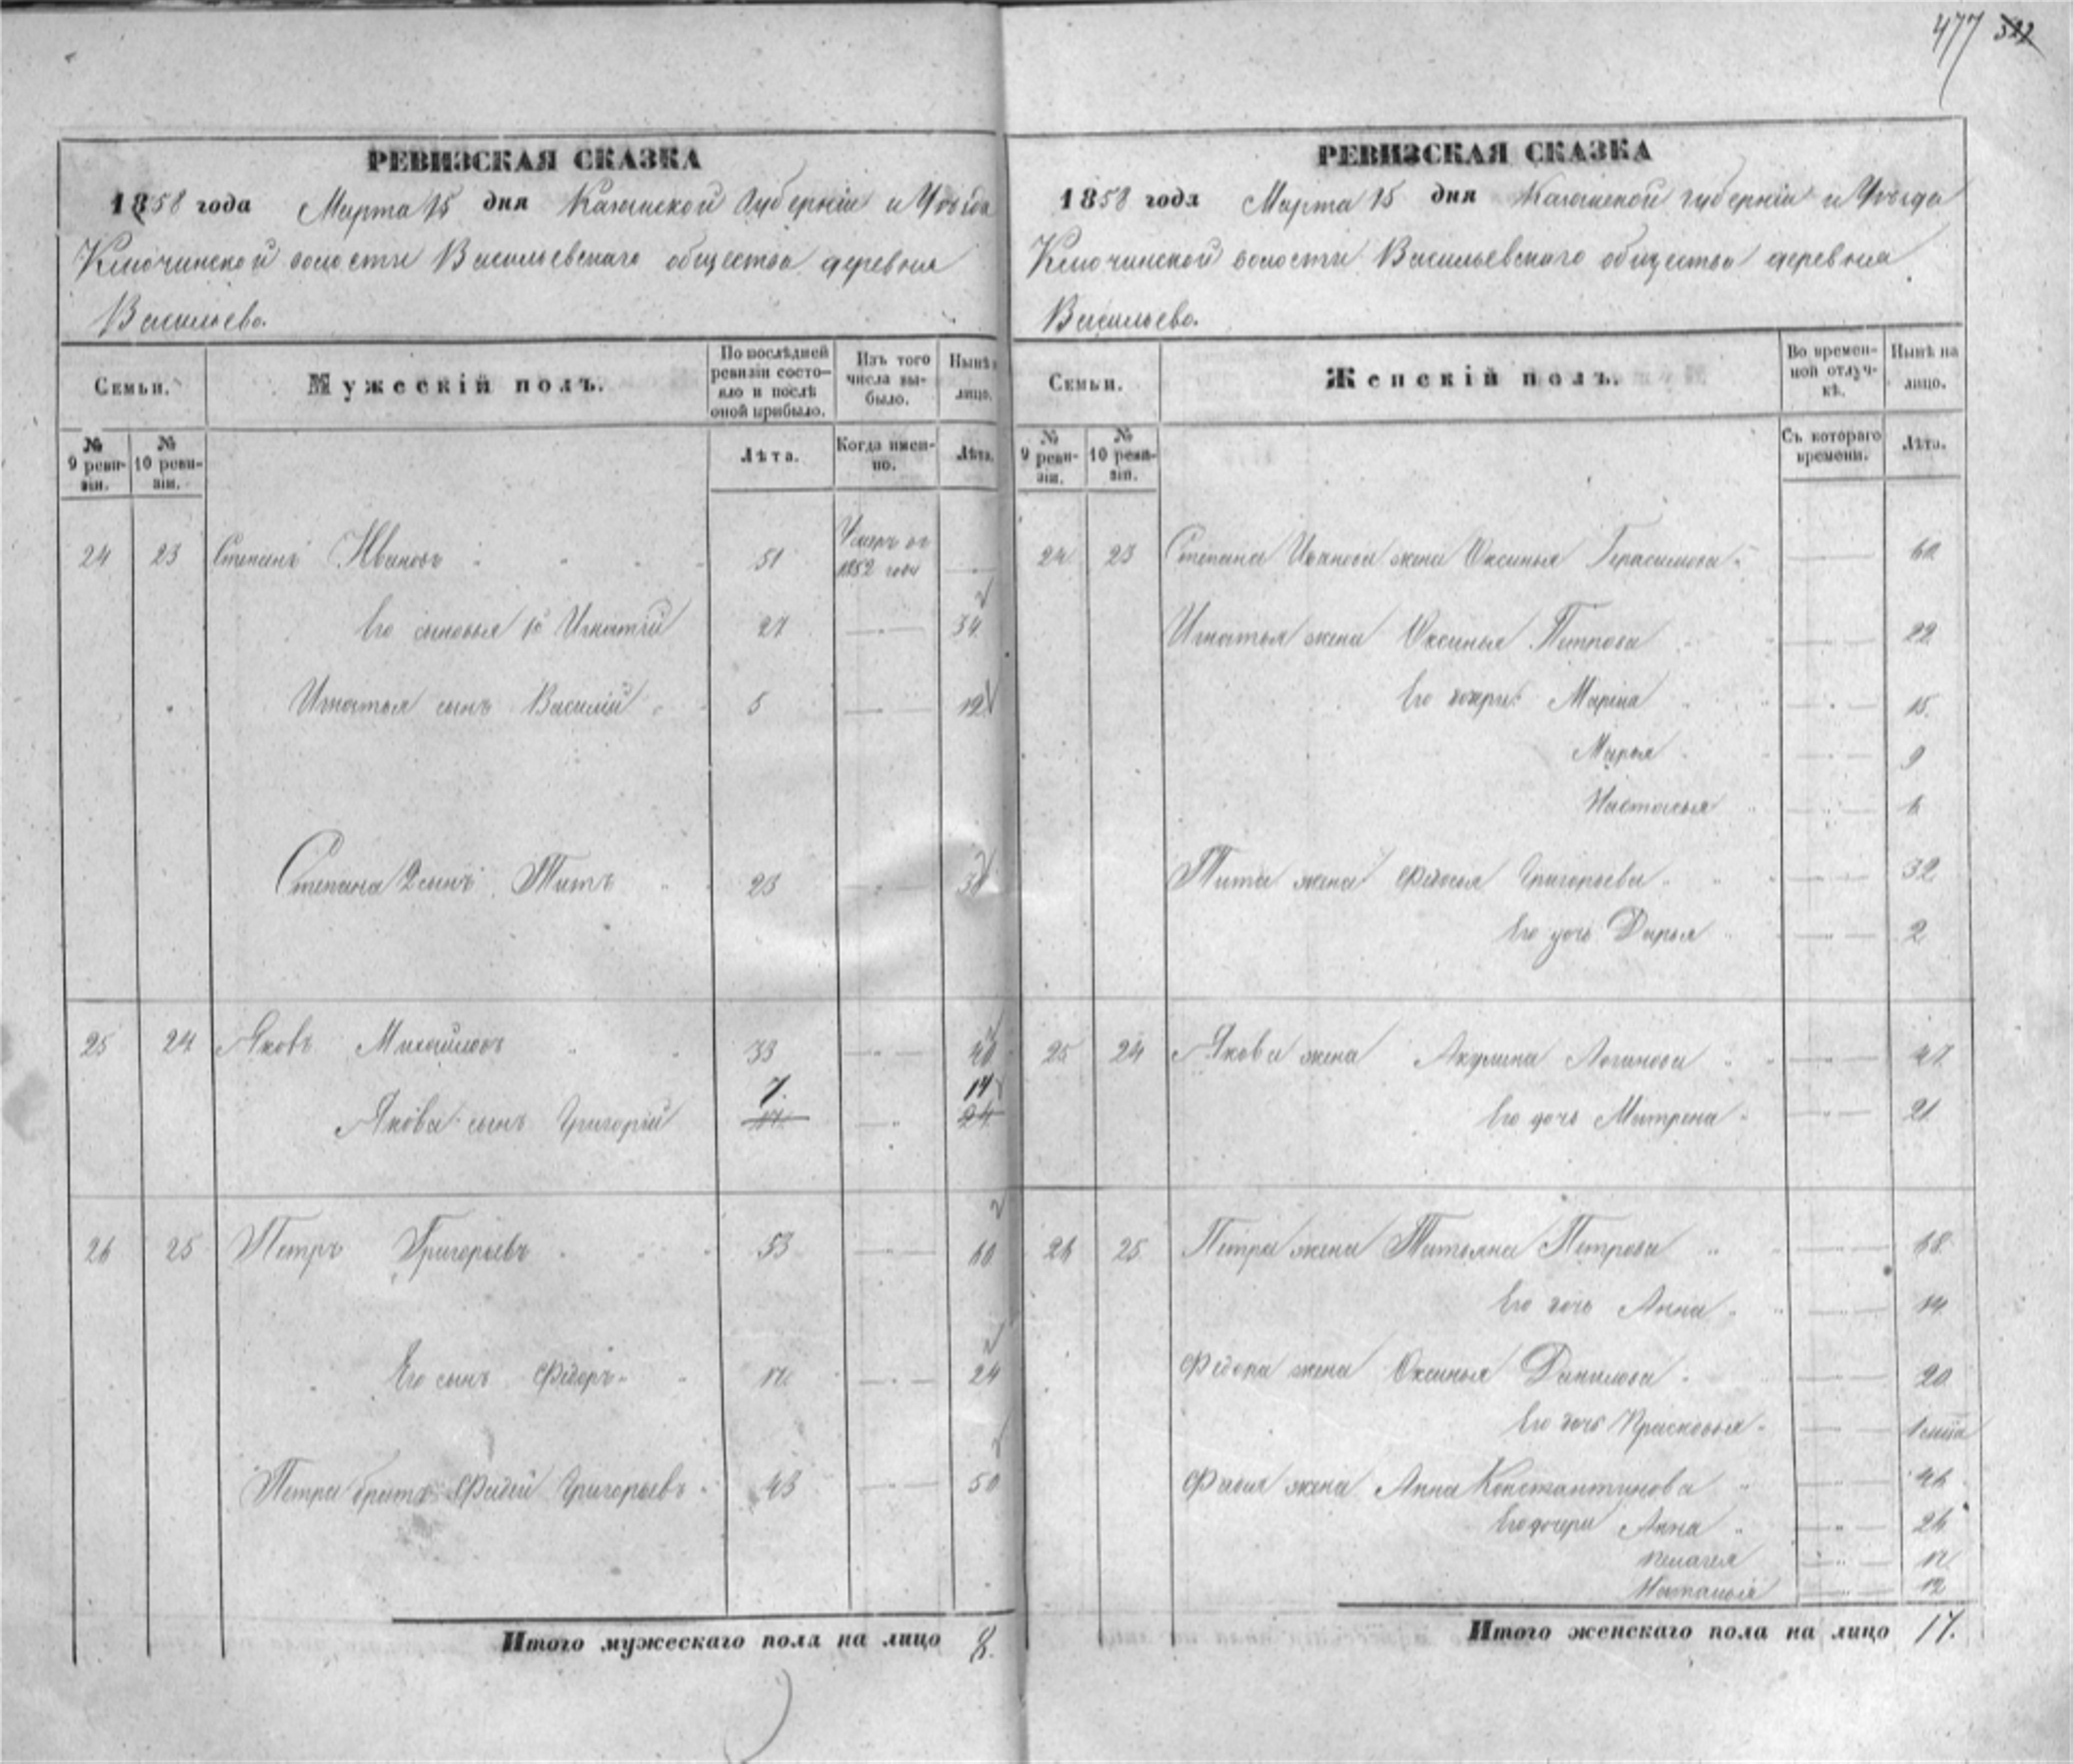 477 322
РЕВИЗСКАЯ СКАЗКА
1858 года Марта 15 дня Казанской Губернiи и Уѣзда
Ключинской волости Васильевскаго общества деревня
Васильево.
Семьи. Мужескiй полъ. По послѣдней ревизiи состояло и послѣ оной прибыло. Изъ того числа выбыло. Нынѣ лицо.
№ 9 ревизiи. № 10 ревизiи. Лѣта. Когда именно. Лѣта.
24 23 Степанъ Ивановъ 51 Умеръ въ 1852 году
Его сыновья 1й Игнатiй 27 34
Игнатья сынъ Василiй 5 12
Степана 2 сынъ Титъ 23 30
25 24 Яковъ Михайловъ 33 40
Якова сынъ Григорiй 7. 17 14 24
26 25 Петръ Григорьевъ 53 60
Его сынъ Федоръ 17 24
Петра братъ Фадей Григорьевъ 43 50
Итого мужескаго пола на лицо 8.
РЕВИЗСКАЯ СКАЗКА
1858 года Марта 15 дня Казанской губернiи и Уѣзда
Ключинской волости Васильевскаго общества деревня
Васильево.
Семьи. Женскiй полъ. Во временной отлучкѣ. Нынѣ на лицо.
№ 9 ревизiи. № 10 ревизiи. Съ котораго времени. Лѣта.
24 23 Степана Иванова жена Оксинья Герасимова 60
Игнатья жена Оксинья Петрова 22
Его дочери Марiна 15.
Марья 9
Настасья 6
Тита жена Федосья Григорьева 32
Его дочь Дарья 2
25 24 Якова жена Акулина Логинова 47
Его дочь Матрена 21
26 25 Петра жена Татьяна Петрова 68
Его дочь Анна 14
Федора жена Оксинья Данилова 20
Его дочь Прасковья
Фадея жена Анна Константинова 46
Его дочери Анна 26
Пелагея 17
Наталья 12
Итого женскаго пола на лицо 17.